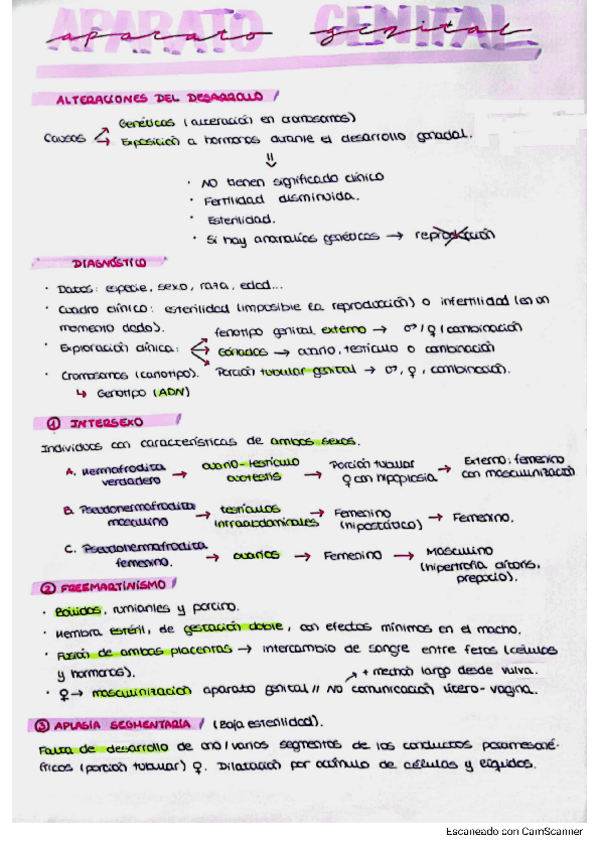 APARATO GENITAL
aparato genital
ALTERACIONES DEL DESARROLLO
Causas → Genéticas (alteración en cromosomas)
→ Exposición a hormonas durante el desarrollo gonadal.
· NO tienen significado clínico
· Fertilidad disminuida.
· Esterilidad.
· Si hay anomalías genéticas → reproducción
DIAGNÓSTICO
· Datos: especie, sexo, raza, edad...
· Cuadro clínico: esterilidad (imposible la reproducción) o infertilidad (en un
momento dado).
· Exploración clínica: → fenotipo genital externo → ♂/♀/combinación
→ Gónadas → ovario, testículo o combinación
→ Porción tubular genital → ♂, ♀, combinación.
· Cromosomas (cariotipo).
↳ Genotipo (ADN)
① INTERSEXO
Individuos con características de ambos sexos.
A. Hermafrodita verdadero → ovario-testículo ovotestis → Porción tubular ♀ con hipoplasia → Externo: femenino con masculinización
B. Pseudohermafrodita masculino → testículos intraabdominales → Femenino (hipostático) → Femenino.
C. Pseudohermafrodita femenino. → ovarios → Femenino → Masculino (hipertrofia clítoris, prepucio).
② FREEMARTINISMO
· Bóvidos, rumiantes y porcino.
· Hembra estéril, de gestación doble, con efectos mínimos en el macho.
· Fusión de ambas placentas → intercambio de sangre entre fetos (células
y hormonas).
↗ + mechón largo desde vulva.
· ♀ → masculinización aparato genital // NO comunicación útero-vagina.
③ APLASIA SEGMENTARIA (Baja esterilidad).
Falta de desarrollo de uno/varios segmentos de los conductos paramesoné-
fricos (porción tubular) ♀. Dilatación por acúmulo de células y líquidos.
Escaneado con CamScanner